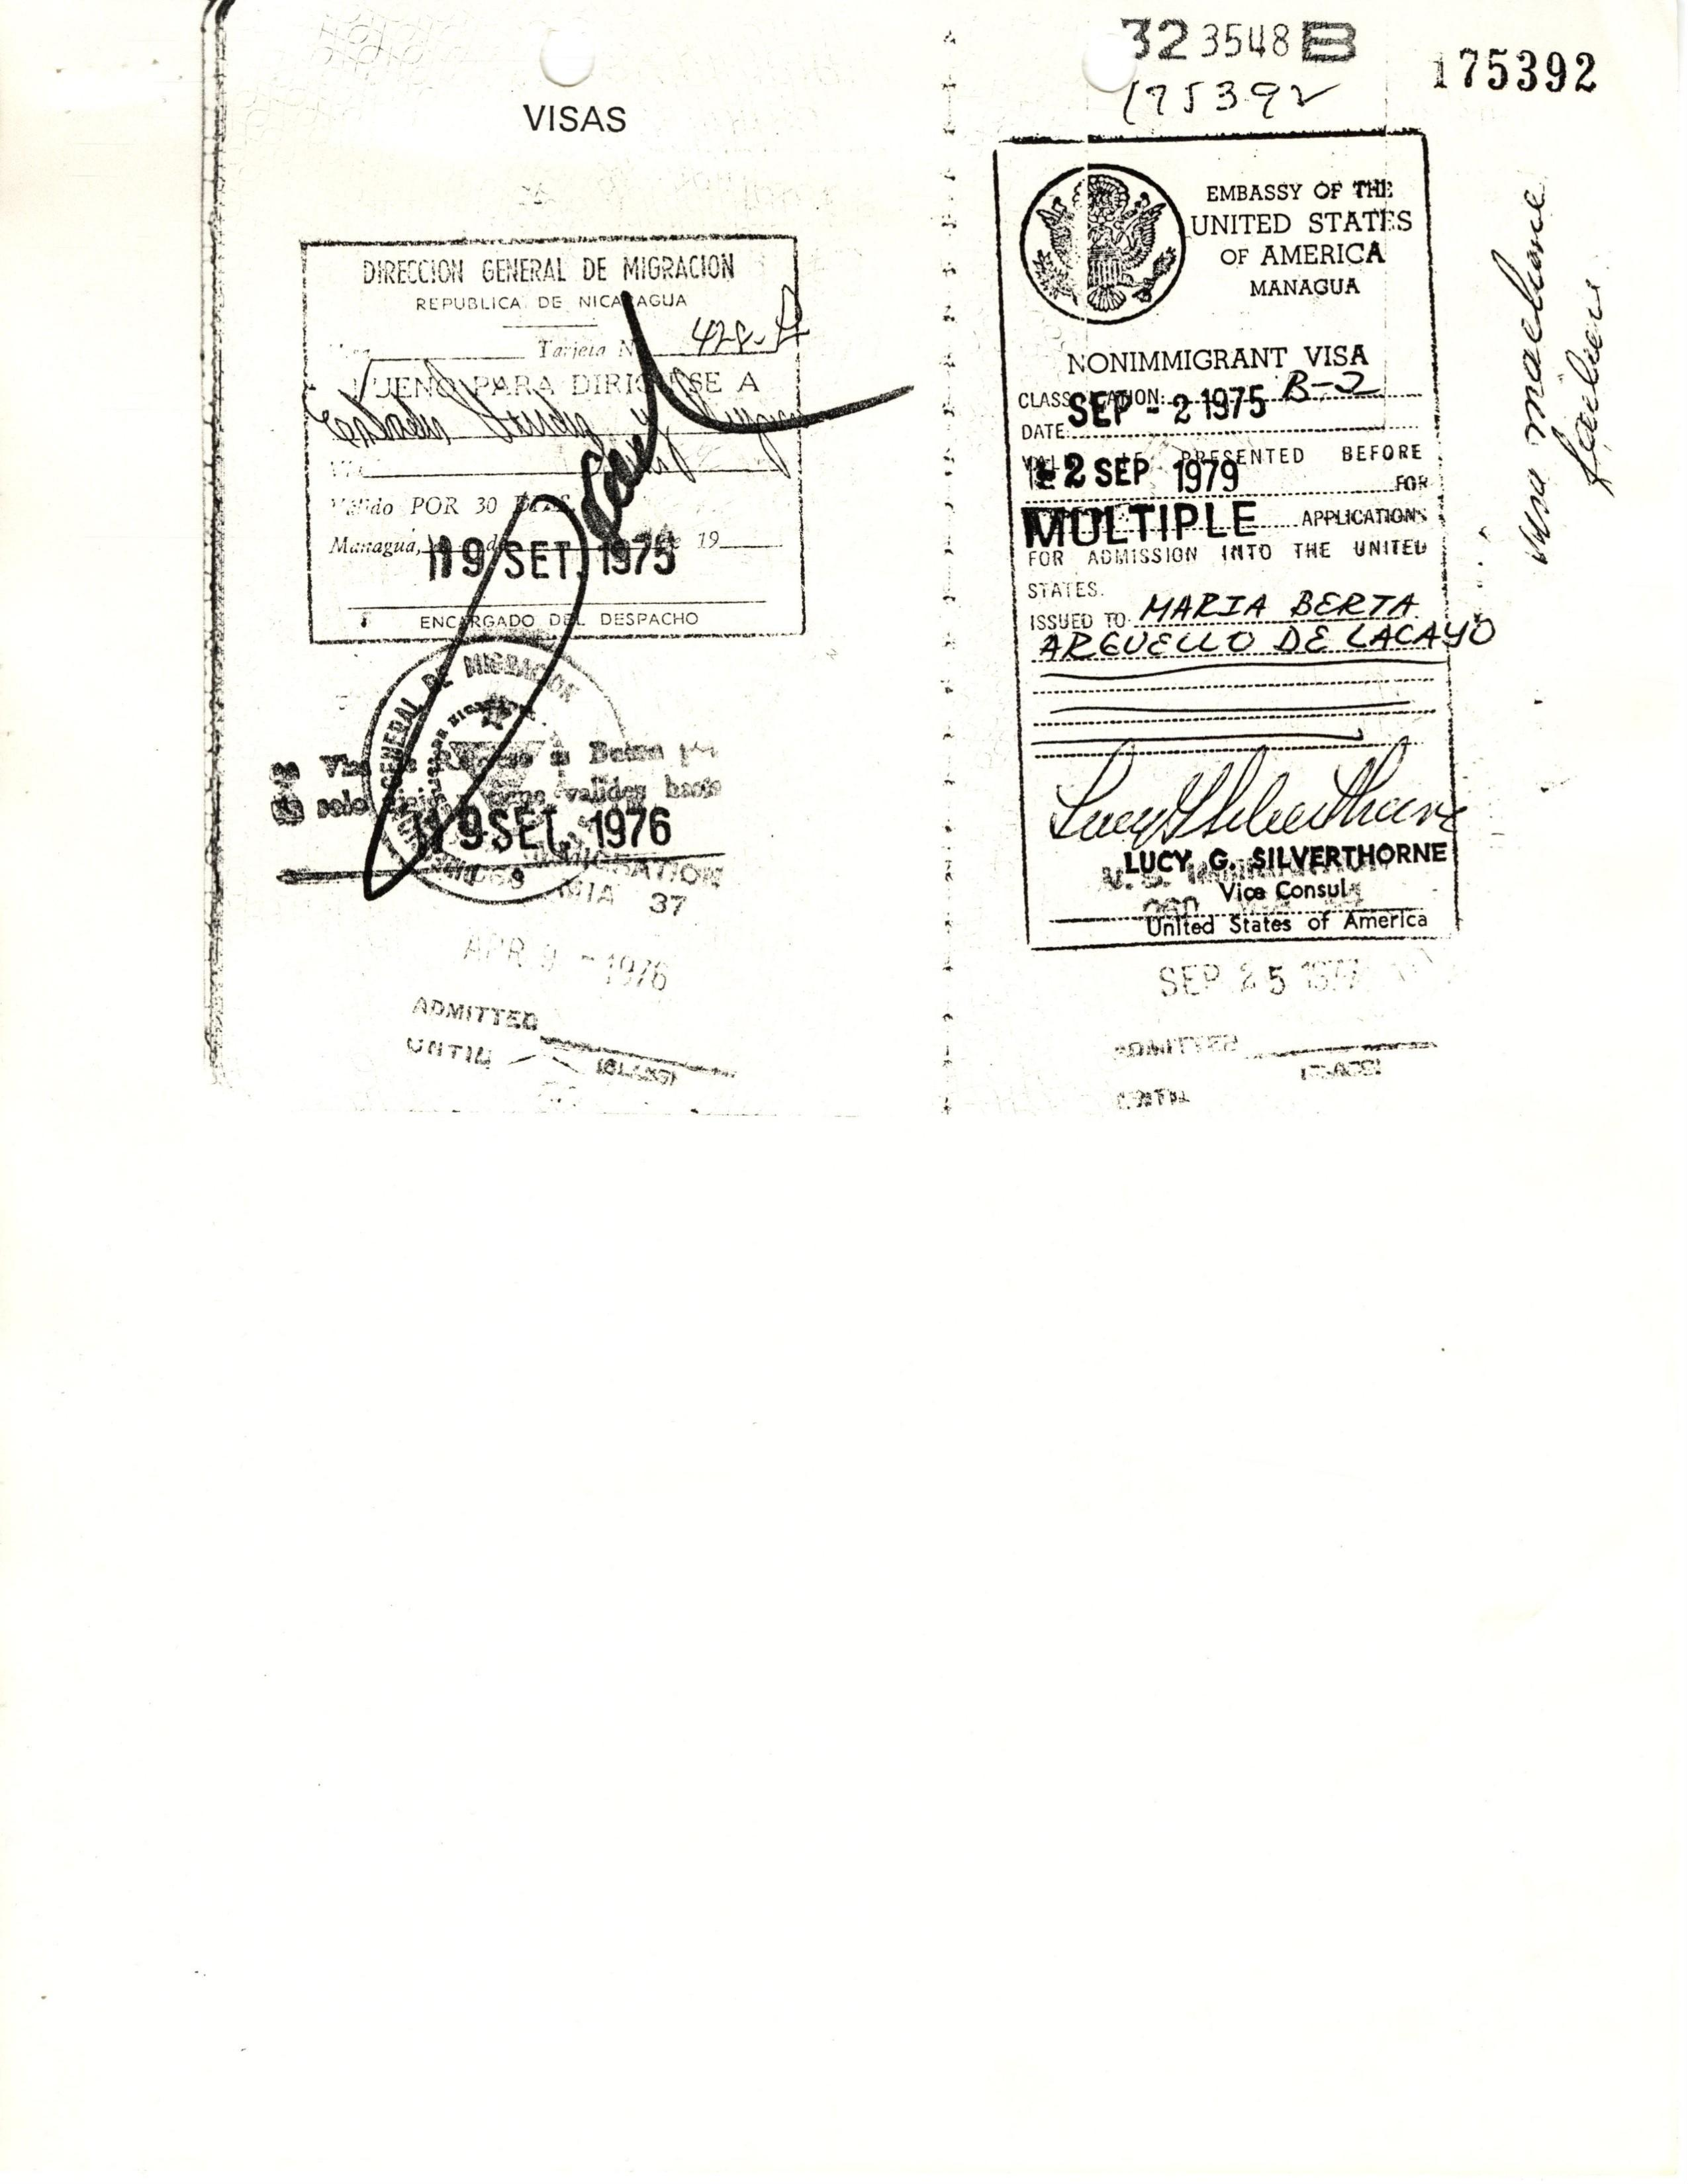 VISAS
DIRECCION GENERAL DE MIGRACION
REPUBLICA DE NICARAGUA
Tarjeta N 428-
BUENO PARA DIRIGIRSE A
Estados Unidos y
Válido POR 30 DIAS
Managua, de de 19
19 SET. 1975
ENCARGADO DEL DESPACHO
GENERAL DE MIGRACION
solo validez hasta
19 SET. 1976
IMMIGRATION
MIA 37
APR 9 - 1976
ADMITTED
UNTIL
(CLASS)
323548 B
175392
175392
EMBASSY OF THE
UNITED STATES
OF AMERICA
MANAGUA
NONIMMIGRANT VISA
CLASSIFICATION: B-2
SEP - 2 1975
DATE:
VALID IF PRESENTED BEFORE
2 SEP 1979 FOR
MULTIPLE APPLICATIONS
FOR ADMISSION INTO THE UNITED
STATES.
ISSUED TO MARIA BERTA
ARGUELLO DE LACAYO
LUCY G. SILVERTHORNE
Vice Consul
United States of America
SEP 25 1977
ADMITTED
(CLASS)
UNTIL